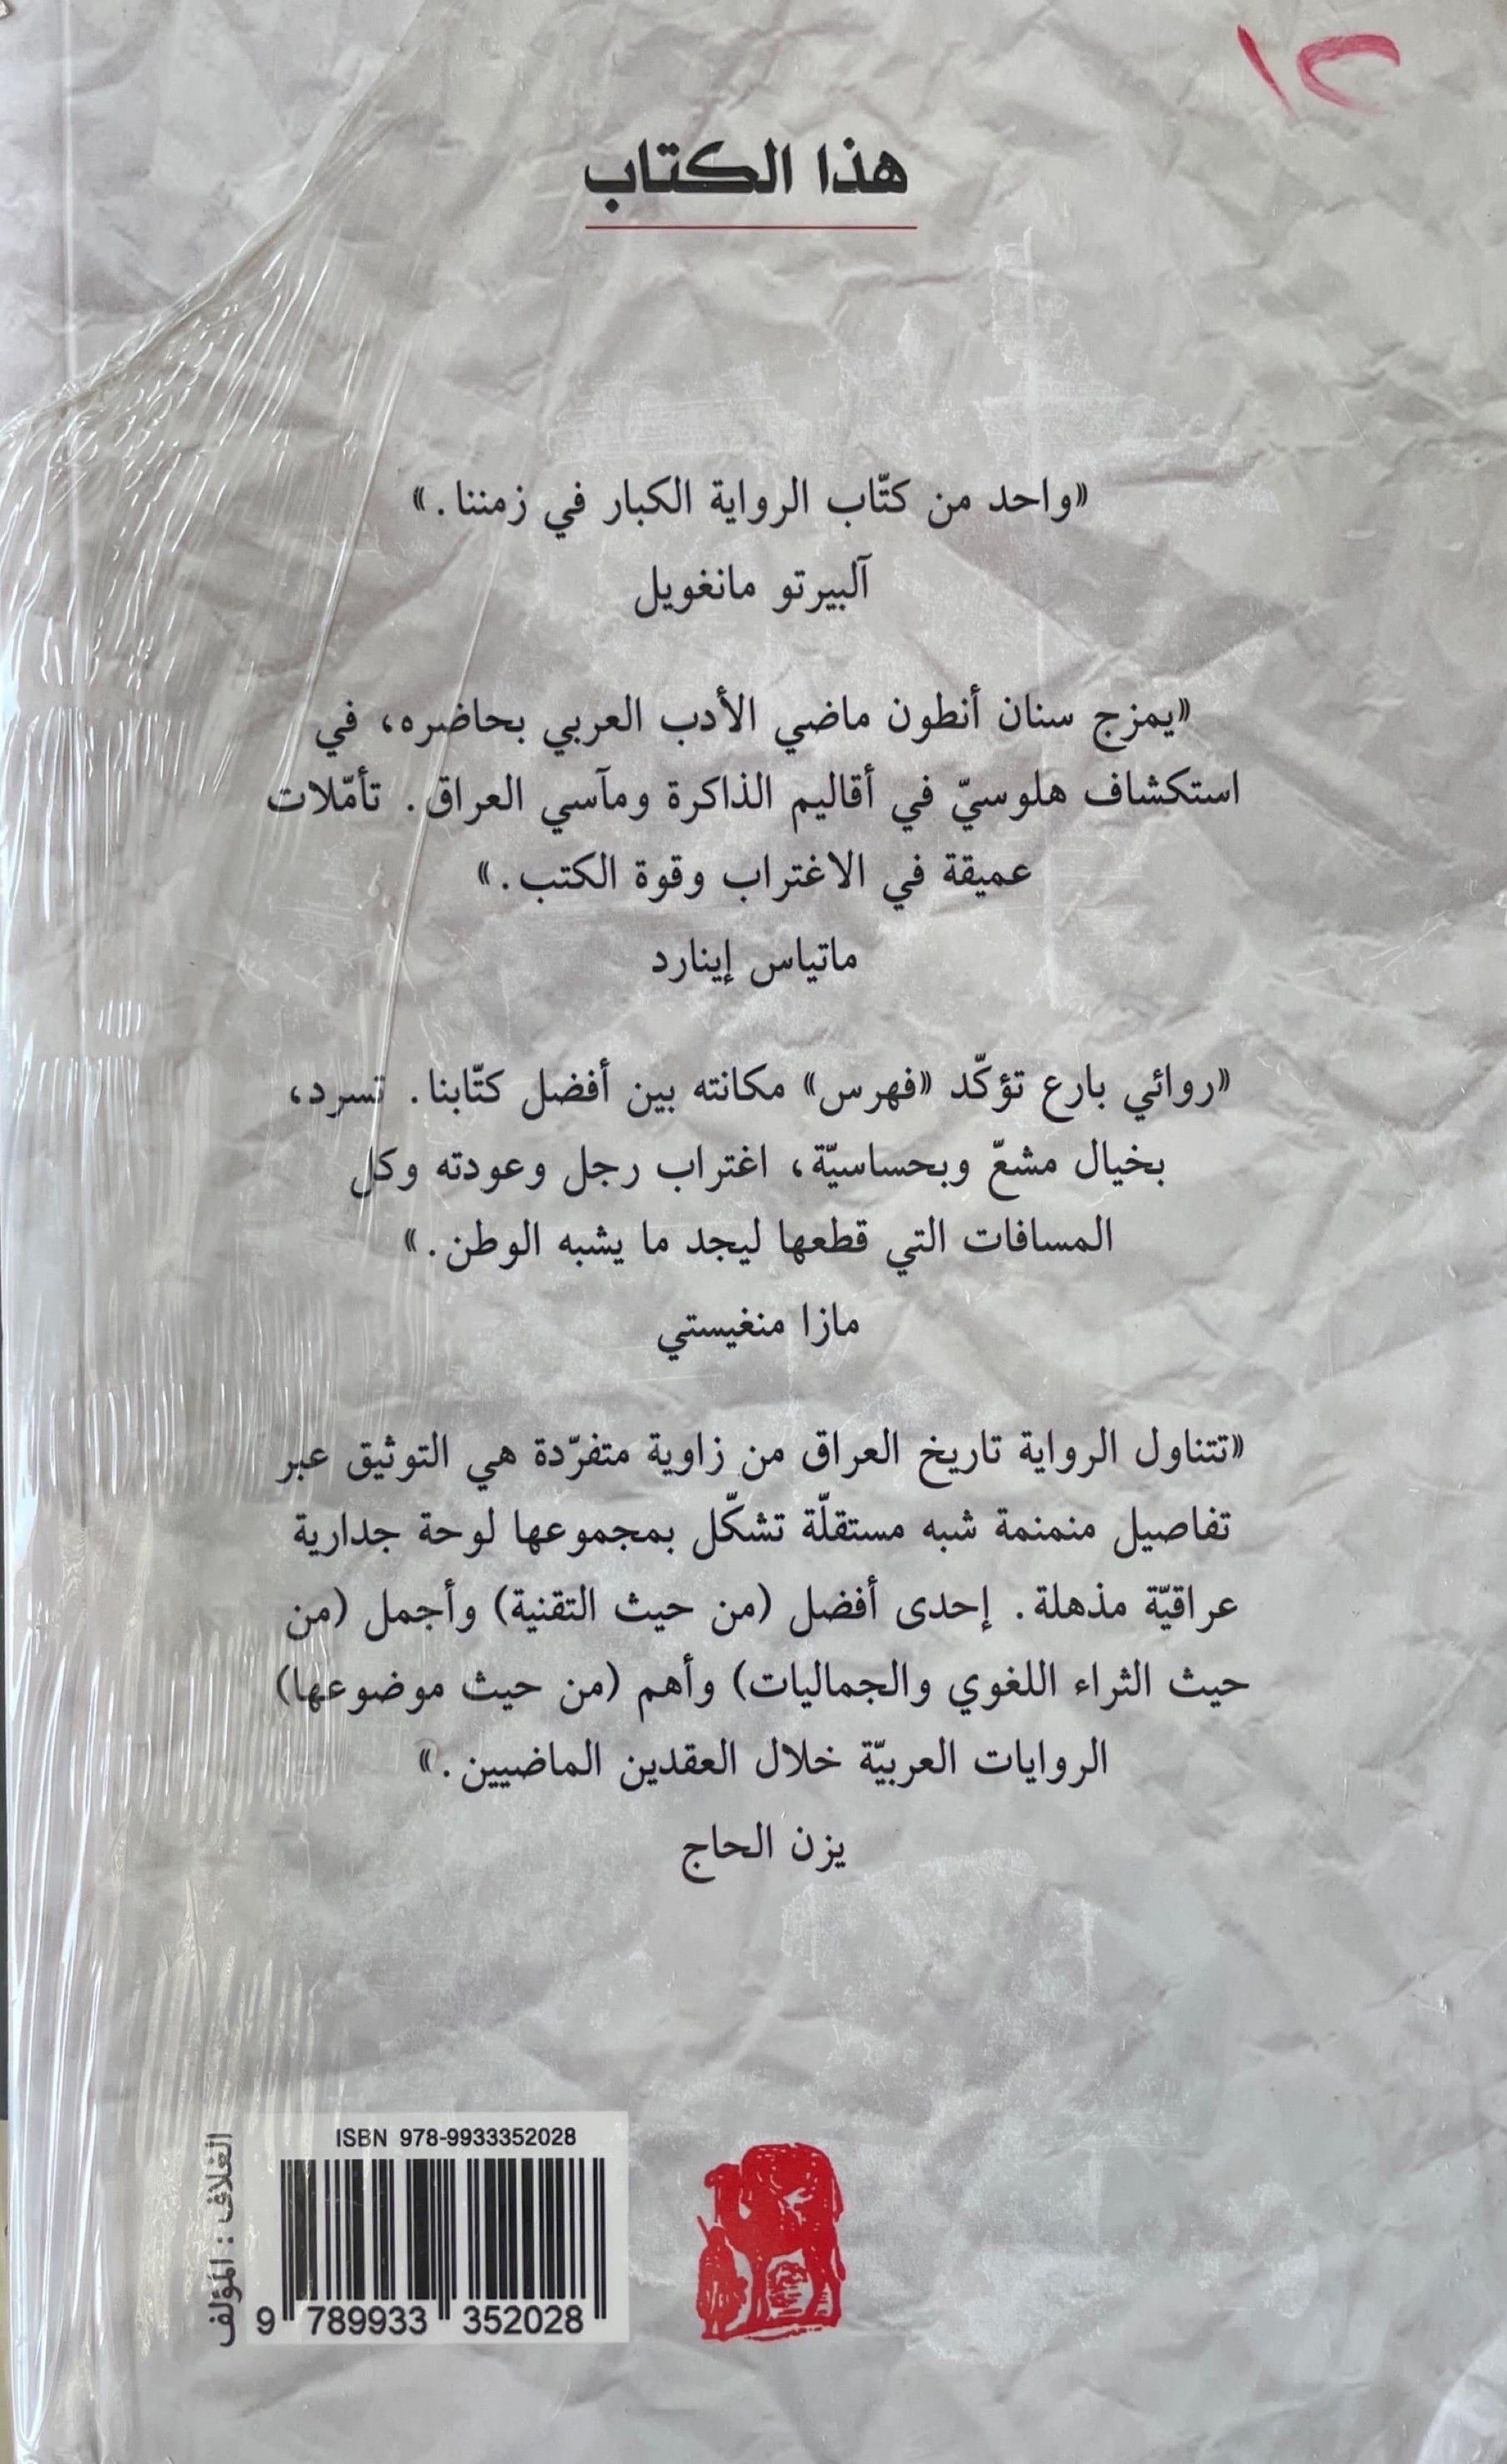 ١٢
هذا الكتاب
«واحد من كتّاب الرواية الكبار في زمننا.»
آلبيرتو مانغويل
«يمزج سنان أنطون ماضي الأدب العربي بحاضره، في
استكشاف هلوسيّ في أقاليم الذاكرة ومآسي العراق. تأمّلات
عميقة في الاغتراب وقوة الكتب.»
ماتياس إينارد
«روائي بارع تؤكّد «فهرس» مكانته بين أفضل كتّابنا. تسرد،
بخيال مشعّ وبحساسيّة، اغتراب رجل وعودته وكل
المسافات التي قطعها ليجد ما يشبه الوطن.»
مازا منغيستي
«تتناول الرواية تاريخ العراق من زاوية متفرّدة هي التوثيق عبر
تفاصيل منمنمة شبه مستقلّة تشكّل بمجموعها لوحة جدارية
عراقيّة مذهلة. إحدى أفضل (من حيث التقنية) وأجمل (من
حيث الثراء اللغوي والجماليات) وأهم (من حيث موضوعها)
الروايات العربيّة خلال العقدين الماضيين.»
يزن الحاج
الغلاف : المؤلف
ISBN 978-9933352028
9 789933 352028